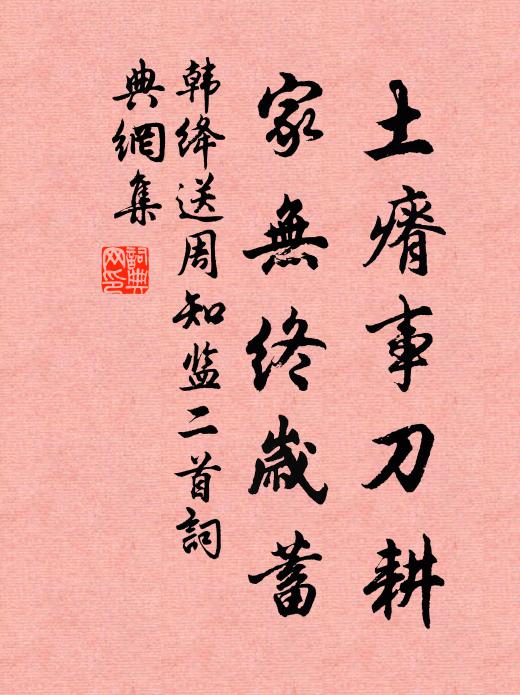 土瘠事刀耕
家無終歲蓄
韩绛送周知监二首詞
典網集
詞典网印